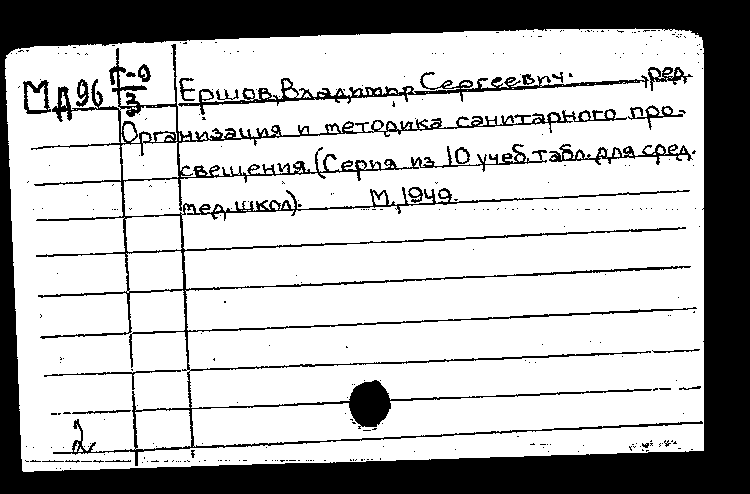 МД96 Г-9 Ершов, Владимир Сергеевич. ,ред.
Организация и методика санитарного про-
свещения. (Серия из 10 учеб. табл. для сред.
мед. школ). М., 1949.
2